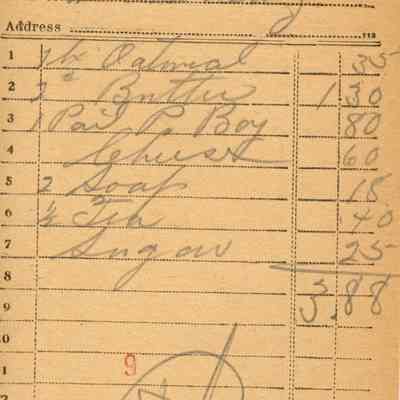 Address 113
1 1 bx Oatmeal 35
2 Butter 1 30
3 1 Pail P. Boy 80
4 Cheese 60
5 2 Soap 18
6 ½ Tea 40
7 Sugar 25
8 3.88
9
0
9
1
2